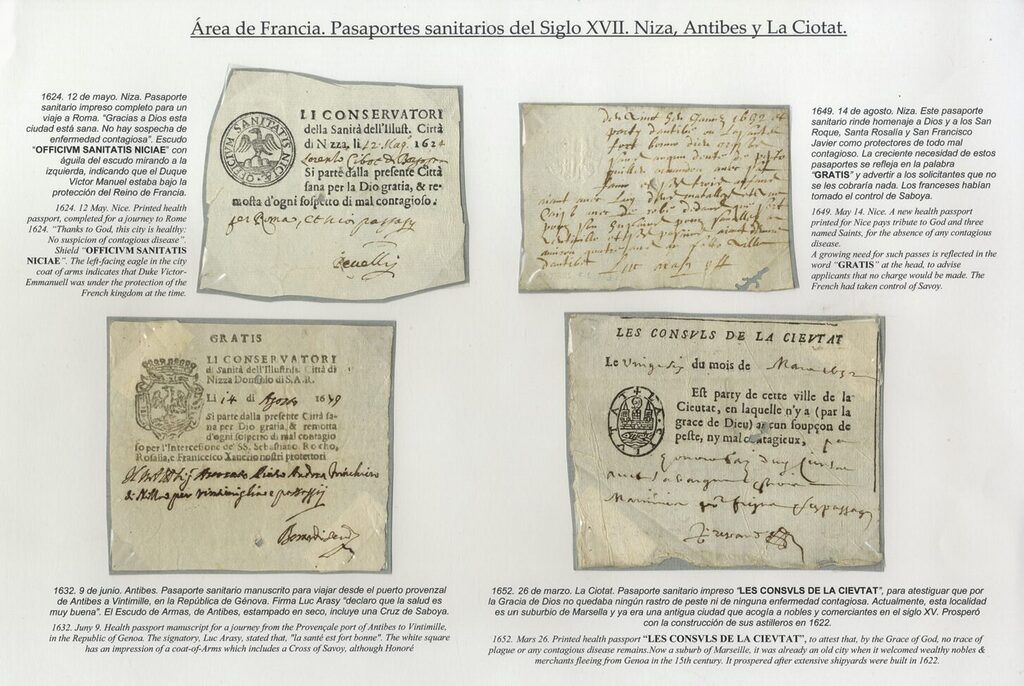 Área de Francia. Pasaportes sanitarios del Siglo XVII. Niza, Antibes y La Ciotat.
1624. 12 de mayo. Niza. Pasaporte
sanitario impreso completo para un
viaje a Roma. "Gracias a Dios esta
ciudad está sana. No hay sospecha de
enfermedad contagiosa". Escudo
"OFFICIVM SANITATIS NICIAE" con
águila del escudo mirando a la
izquierda, indicando que el Duque
Víctor Manuel estaba bajo la
protección del Reino de Francia.
1624. 12 May. Nice. Printed health
passport, completed for a journey to Rome
1624. "Thanks to God, this city is healthy:
No suspicion of contagious disease".
Shield "OFFICIVM SANITATIS
NICIAE". The left-facing eagle in the city
coat of arms indicates that Duke Victor-
Emmanuell was under the protection of the
French kingdom at the time.
OFFICIVM SANITATIS NICIÆ
LI CONSERVATORI
della Sanità dell'Illust. Città
di Nizza, li 12 Mag. 1624
Si parte dalla presente Città
sana per la Dio gratia, & re-
mosta d'ogni sospetto di mal contagioso.
per Roma,
1649. 14 de agosto. Niza. Este pasaporte
sanitario rinde homenaje a Dios y a los San
Roque, Santa Rosalía y San Francisco
Javier como protectores de todo mal
contagioso. La creciente necesidad de estos
pasaportes se refleja en la palabra
"GRATIS" y advertir a los solicitantes que no
se les cobraría nada. Los franceses habían
tomado el control de Saboya.
1649. May 14. Nice. A new health passport
printed for Nice pays tribute to God and three
named Saints, for the absence of any contagious
disease.
A growing need for such passes is reflected in the
word "GRATIS" at the head, to advise
applicants that no charge would be made. The
French had taken control of Savoy.
Luc arasy
GRATIS
LI CONSERVATORI
di Sanità dell'Illustriss. Città di
Nizza Dominio di S.A.R.
Li 14 di Agosto
Si parte dalla presente Città sa-
na per Dio gratia, & remotta
d'ogni sospetto di mal contagio
so per l'Intercessione de' SS. Sebastiano Rocho,
Rosalia, e Francesco Xauerio nostri protettori
LES CONSVLS DE LA CIEVTAT
Le du mois de Mars 1652
Est party de cette ville de la
Cieutat, en laquelle n'y a (par la
grace de Dieu) aucun soupçon de
peste, ny mal contagieux,
1632. 9 de junio. Antibes. Pasaporte sanitario manuscrito para viajar desde el puerto provenzal
de Antibes a Vintimille, en la República de Génova. Firma Luc Arasy "declaro que la salud es
muy buena". El Escudo de Armas, de Antibes, estampado en seco, incluye una Cruz de Saboya.
1632. Juny 9. Health passport manuscript for a journey from the Provençale port of Antibes to Vintimille,
in the Republic of Genoa. The signatory, Luc Arasy, stated that, "la santé est fort bonne". The white square
has an impression of a coat-of-Arms which includes a Cross of Savoy, although Honoré
1652. 26 de marzo. La Ciotat. Pasaporte sanitario impreso "LES CONSVLS DE LA CIEVTAT", para atestiguar que por
la Gracia de Dios no quedaba ningún rastro de peste ni de ninguna enfermedad contagiosa. Actualmente, esta localidad
es un suburbio de Marsella y ya era una antigua ciudad que acogía a nobles y comerciantes en el siglo XV. Prosperó
con la construcción de sus astilleros en 1622.
1652. Mars 26. Printed health passport "LES CONSVLS DE LA CIEVTAT", to attest that, by the Grace of God, no trace of
plague or any contagious disease remains.Now a suburb of Marseille, it was already an old city when it welcomed wealthy nobles &
merchants fleeing from Genoa in the 15th century. It prospered after extensive shipyards were built in 1622.